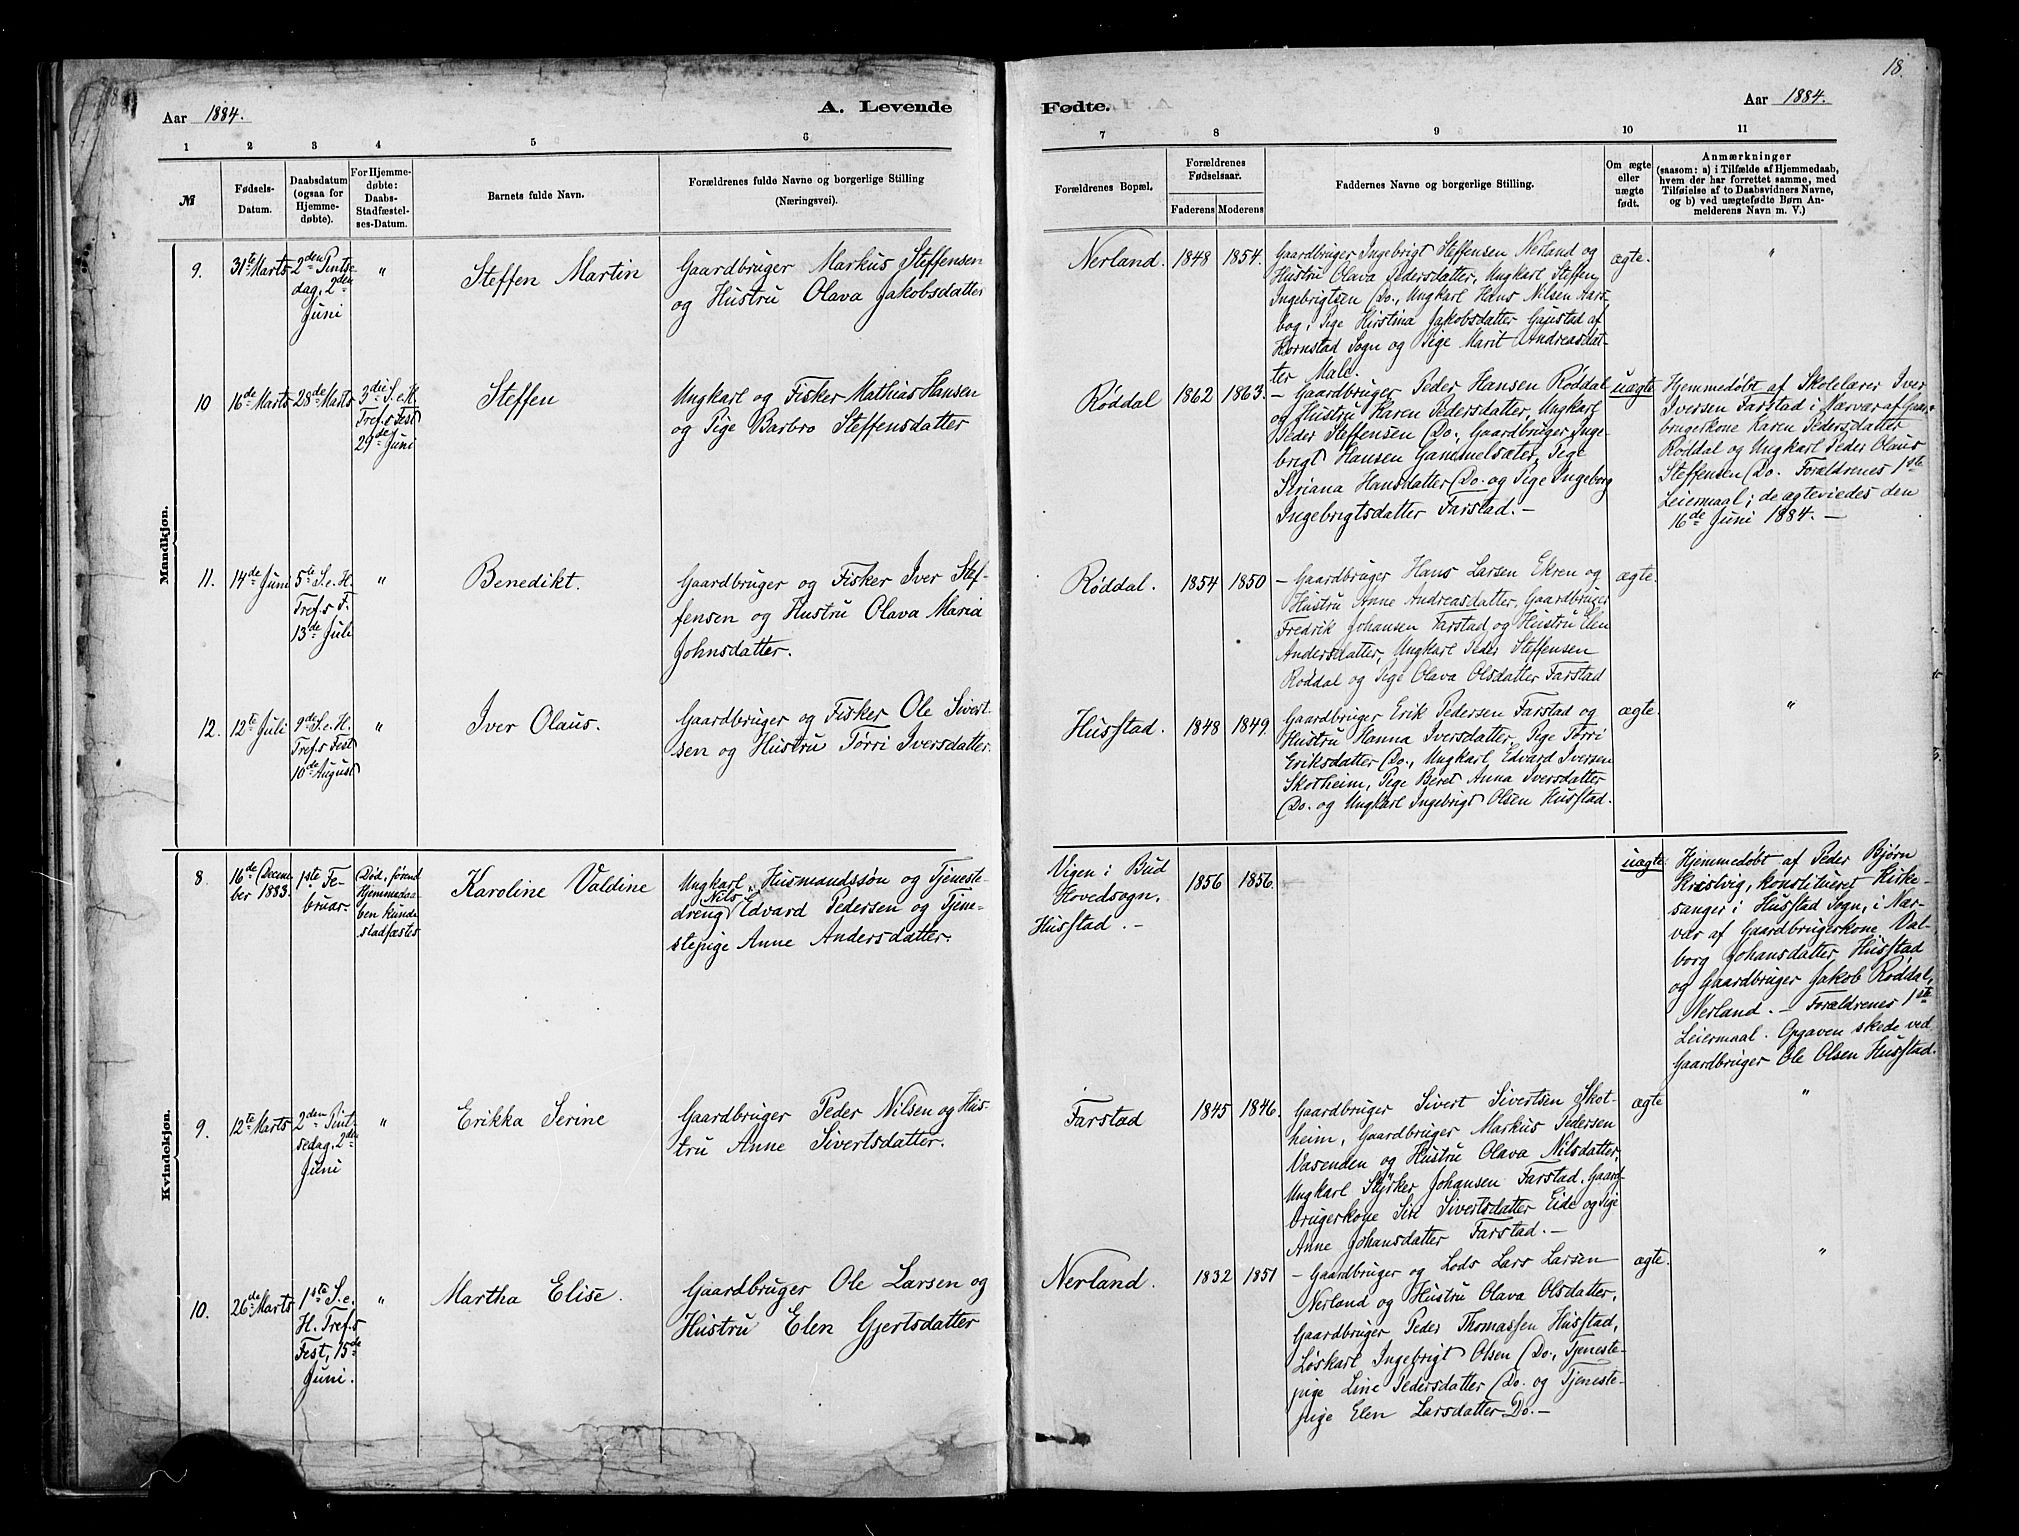 18.
Aar 1884.
A. Levende
Fødte.
Aar 1884.
1 2 3 4 5 6
7 8 9 10 11
№
Fødsels-
Datum.
Daabsdatum
(ogsaa for
Hjemme-
døbte).
For Hjemme-
døbte:
Daabs-
Stadfæstel-
ses-Datum.
Barnets fulde Navn.
Forældrenes fulde Navne og borgerlige Stilling
(Næringsvei).
Forældrenes Bopæl.
Forældrenes
Fødselsaar.
Faderens
Moderens
Faddernes Navne og borgerlige Stilling.
Om ægte
eller
uægte
født.
Anmærkninger
(saasom: a) i Tilfælde af Hjemmedaab,
hvem der har forrettet samme, med
Tilføielse af to Daabsvidners Navne,
og b) ved uægtefødte Børn An-
melderens Navn m. V.)
Mandkjøn.
9.
31te Marts
2den Pintse
dag, 2den
Juni
"
Steffen Martin
Gaardbruger Markus Steffensen
og Hustru Olava Jakobsdatter
Nerland.
1848
1854.
Gaardbruger Ingebrigt Steffensen Nerland og
Hustru Olava Pedersdatter, Ungkarl Steffen
Ingebrigtsen Do., Ungkarl Hans Nilsen Aars-
bog, Pige Kirstina Jakobsdatter Gagstad af
Kornstad Sogn og Pige Marit Andreasdat-
ter Male.
ægte.
"
10
16de Marts
28de Marts
3die S. e. H.
Tref.s Fest
29de Juni
Steffen
Ungkarl og Fisker Mathias Hansen
og Pige Barbro Steffensdatter
Røddal
1862
1863.
– Gaardbruger Peder Hansen Røddal
og Hustru Karen Pedersdatter, Ungkarl
Peder Steffensen Do., Gaardbruger Inge-
brigt Hansen Gammelsæter, Pige
Siriana Hansdatter Do. og Pige Ingeborg
Ingebrigtsdatter Farstad. –
uægte
Hjemmedøbt af Skolelærer Iver
Iversen Farstad i Nærvær af Gaard-
brugerkone Karen Pedersdatter
Røddal og Ungkarl Peder Olaus
Steffensen Do. Forældrenes 1ste
Leiermaal; de ægteviedes den
16de Juni 1884. –
11.
14de Juni
5te S. e. H.
Tref.s F.
13de Juli
"
Benedikt.
Gaardbruger og Fisker Iver Stef-
fensen og Hustru Olava Maria
Johnsdatter.
Røddal.
1854
1850
– Gaardbruger Hans Larsen Ekren og
Hustru Anne Andreasdatter, Gaardbruger
Fredrik Johansen Farstad og Hustru Elen
Andersdatter, Ungkarl Peder Steffensen
Røddal og Pige Olava Olsdatter Farstad
ægte.
12.
12te Juli
9de S. e. H.
Tref.s Fest
10de August
"
Iver Olaus.
Gaardbruger og Fisker Ole Sivert-
sen og Hustru Tørri Iversdatter.
Husstad.
1848
1849.
Gaardbruger Erik Pedersen Farstad og
Hustru Hanna Iversdatter, Pige Tørri
Eriksdatter Do., Ungkarl Edvard Iversen
Skotheim, Pige Beret Anna Iversdatter
Do. og Ungkarl Ingebrigt Olsen Husstad.
ægte.
"
Kvindekjøn.
8.
16de Decem-
ber 1883.
1ste Fe-
bruar.
Død, førend
Hjemmedaa-
ben kunde
stadfæstes
Karoline Valdine
Ungkarl, Husmandssøn og Tjeneste-
dreng Nils Edvard Pedersen og Tjene-
stepige Anne Andersdatter.
Vigen i Bud
Hovedsogn.
Husstad. –
1856
1856.
–
uægte
Hjemmedøbt af Peder Bjørn
Kristvig, konstitueret Kirke-
sanger i Husstad Sogn, i Nær-
vær af Gaardbrugerkone Val-
borg Johansdatter Husstad
og Gaardbruger Jakob Røddal,
Nerland. – Forældrenes 1ste
Leiermaal. Opgaven skede ved
Gaardbruger Ole Olsen Husstad.
9.
12te Marts
2den Pint-
sedag, 2den
Juni
"
Erikka Serine
Gaardbruger Peder Nilsen og Hus-
tru Anne Sivertsdatter.
Farstad
1845
1846.
Gaardbruger Sivert Sivertsen Skot-
heim, Gaardbruger Markus Pedersen
Vasenden og Hustru Olava Nilsdatter,
Ungkarl Styrker Johansen Farstad, Gaard-
brugerkone Siri Sivertsdatter Eide og Pige
Anne Johansdatter Farstad. –
ægte
"
10.
26de Marts
1ste S. e.
H. Tref.s
Fest, 15de
Juni.
"
Martha Elise.
Gaardbruger Ole Larsen og
Hustru Elen Gjertsdatter
Nerland.
1832
1851
– Gaardbruger og Lods Lars Larsen
Nerland og Hustru Olava Olsdatter,
Gaardbruger Peder Thomassen Husstad,
Løskarl Ingebrigt Olsen Do., Tjeneste-
pige Line Pedersdatter Do. og Tjeneste-
pige Elen Larsdatter Do. –
ægte.
"